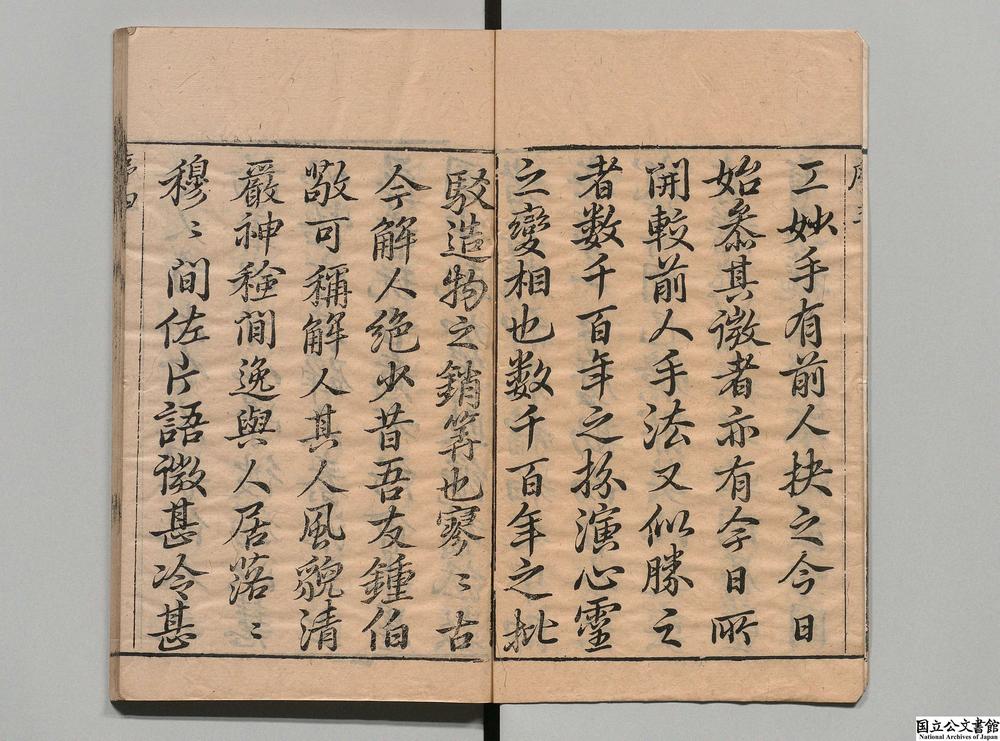 工妙手有前人抉之今日
始叅其微者亦有今日所
開較前人手法又似勝之
者数千百年之扮演心靈
之變相也数千百年之批
駁造物之銷筭也寥〻古
今解人絶少昔吾友鍾伯
敬可稱解人其人風貌清
嚴神稜間逸與人居落〻
穆〻間佐片語微甚冷甚
序四
国立公文書館
National Archives of Japan